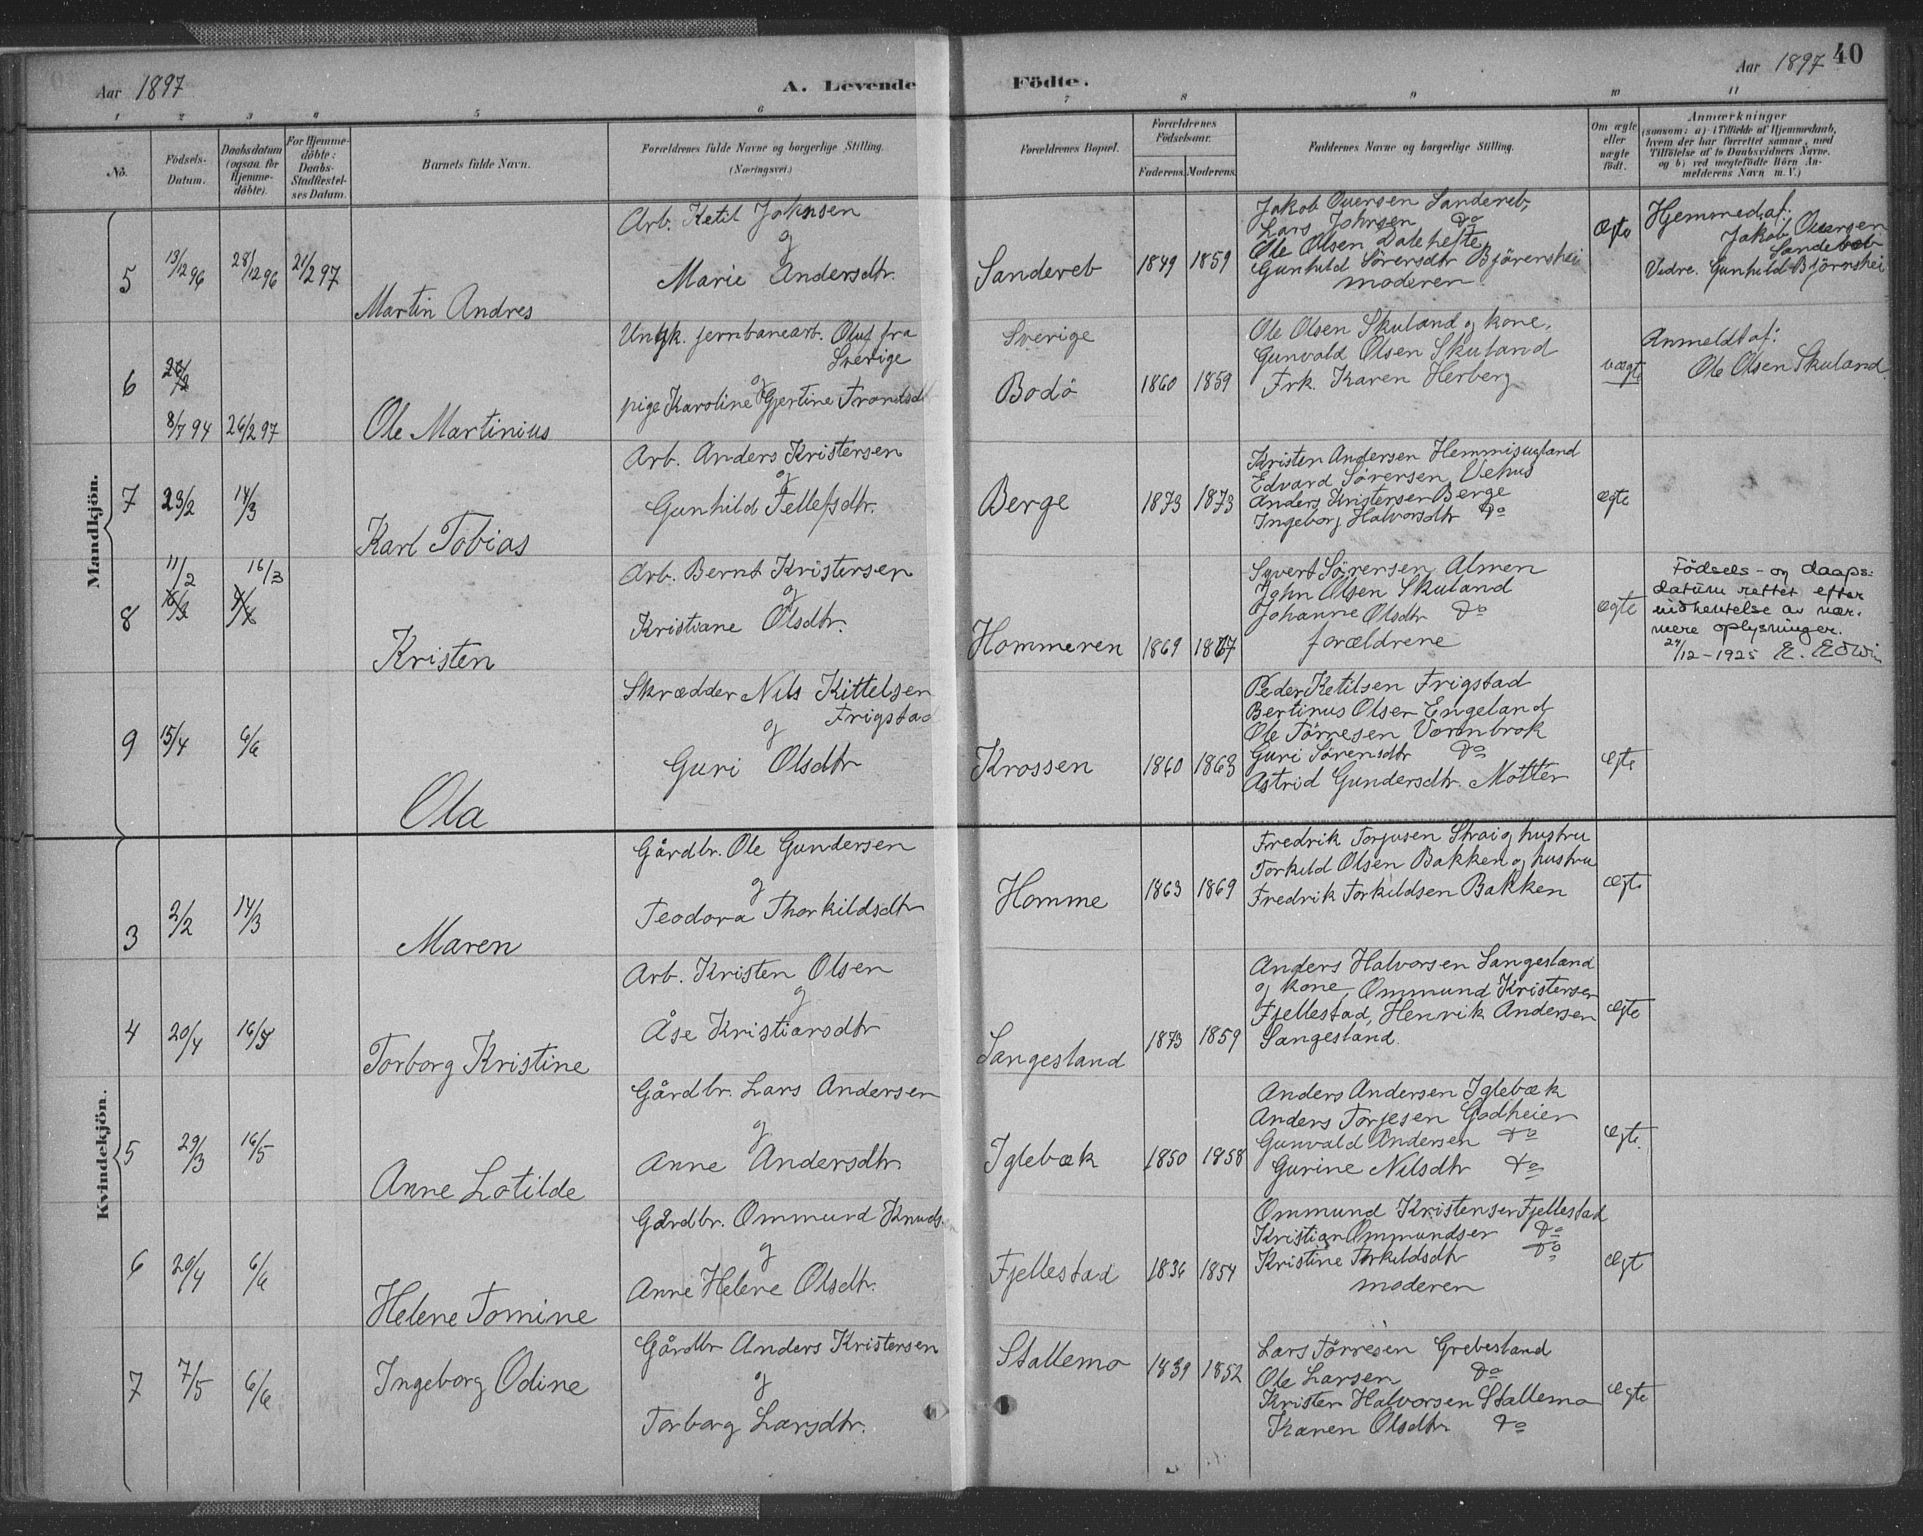 Aar 1897
A. Levende Födte.
Aar 1897
40
1 2 3 4 5 6 7 8 9 10 11
No.
Födsels-Datum.
Daabsdatum (ogsaa for Hjemmedöbte).
For Hjemmedöbte: Daabs-Stadfæstelses Datum.
Barnets fulde Navn.
Forældrenes fulde Navne og borgerlige Stilling. (Næringsvei.)
Forældrenes Bopæl.
Forældrenes Födselsaar.
Faderens. Moderens.
Faddernes Navne og borgerlig Stilling.
Om ægte eller uægte födt.
Anmærkninger
(saasom: a) i Tilfælde af Hjemmedaab, hvem der har forrettet samme, med Tilföielse af to Daabsvidners Navne, og b) ved uegtefödte Börn Anmelderens Navn m. V.)
Mandkjön.
5
13/12 96
28/12 96
21/2 97
Martin Andres
Arb. Ketil Johnsen
og
Marie Andersdtr.
Sandereb
1849 1859
Jakob Ouersen Sandereb,
Lars Johnsen Do
Ole Olsen Dalehefte
Gunhild Sörensdtr Björnshei
moderen
ægte
Hjemmed. af:
Jakob Ouersen
Sandereb
Vidne. Gunhild Björnshei
6
8/7 94
26/2 97
Ole Martinius
Ungk. jernbanearb. Oluf fra
Sverige
og
pige Karoline Gjertine Frantsd
Sverige
Bodö
1860 1859
Ole Olsen Skuland og kone,
Gunvald Olsen Skuland
Frk. Karen Herberg
uægte
Anmeldt af:
Ole Olsen Skuland.
7
23/2
14/3
Karl Tobias
Arb. Anders Kristensen
og
Gunhild Tellefsdtr.
Berge
1873 1873
Kristen Andersen Hemmisugland
Edvard Sörensen Vehus
Anders Kristensen Berge
Ingeborg Halvorsdtr Do
ægte
8
11/2
16/3
Kristen
Arb. Bernt Kristensen
og
Kristiane Olsdtr.
Hommeren
1869 1867
Syvert Sörensen Almen
John Olsen Skuland
Johanne Olsdtr Do
forældrene
ægte
Födsels- og daaps-
datum rettet efter
indhentelse av nær-
mere oplysninger.
24/12-1925 E. Edwin
9
15/4
6/6
Ola
Skrædder Nils Kittelsen
Frigstad
og
Guri Olsdtr
Krossen
1860 1863
Peder Ketilsen Frigstad
Bertinus Olsen Engeland
Ole Törresen Vormbrok
Guri Sörensdtr Do
Astrid Gundersdtr. Motter
ægte
Kvindekjön.
3
2/2
14/3
Maren
Gårdbr. Ole Gundersen
og
Teodora Thorkildsdtr
Homme
1863 1869
Fredrik Torjusen Strai og hustru
Torkild Olsen Bakken og hustru
Fredrik Torkildsen Bakken
ægte
4
20/4
16/5
Torborg Kristine
Arb. Kristen Olsen
og
Åse Kristiansdtr
Langesland
1873 1859
Anders Halvorsen Langesland
og kone, Ommund Kristensen
Fjellestad, Henrik Andersen
Langesland.
ægte
5
29/3
16/5
Anne Lotilde
Gårdbr. Lars Andersen
og
Anne Andersdtr
Iglebæk
1850 1858
Anders Andersen Iglebæk
Anders Torjesen Godheien
Gunvald Andersen Do
Gurine Nilsdtr Do
ægte.
6
20/4
6/6
Helene Tomine
Gårdbr. Ommund Knuds
og
Anne Helene Olsdtr.
Fjellestad
1836 1854
Ommund Kristensen Fjellestad
Kristian Ommundsen Do
Kristine Torkildsdtr Do
moderen
ægt
7
7/5
6/6
Ingeborg Odine
Gårdbr Anders Kristensen
og
Torborg Larsdtr.
Stallemo
1839 1852
Lars Törresen Grebestand
Ole Larsen Do
Kristen Halvorsen Stallemo
Karen Olsdtr Do
ægte